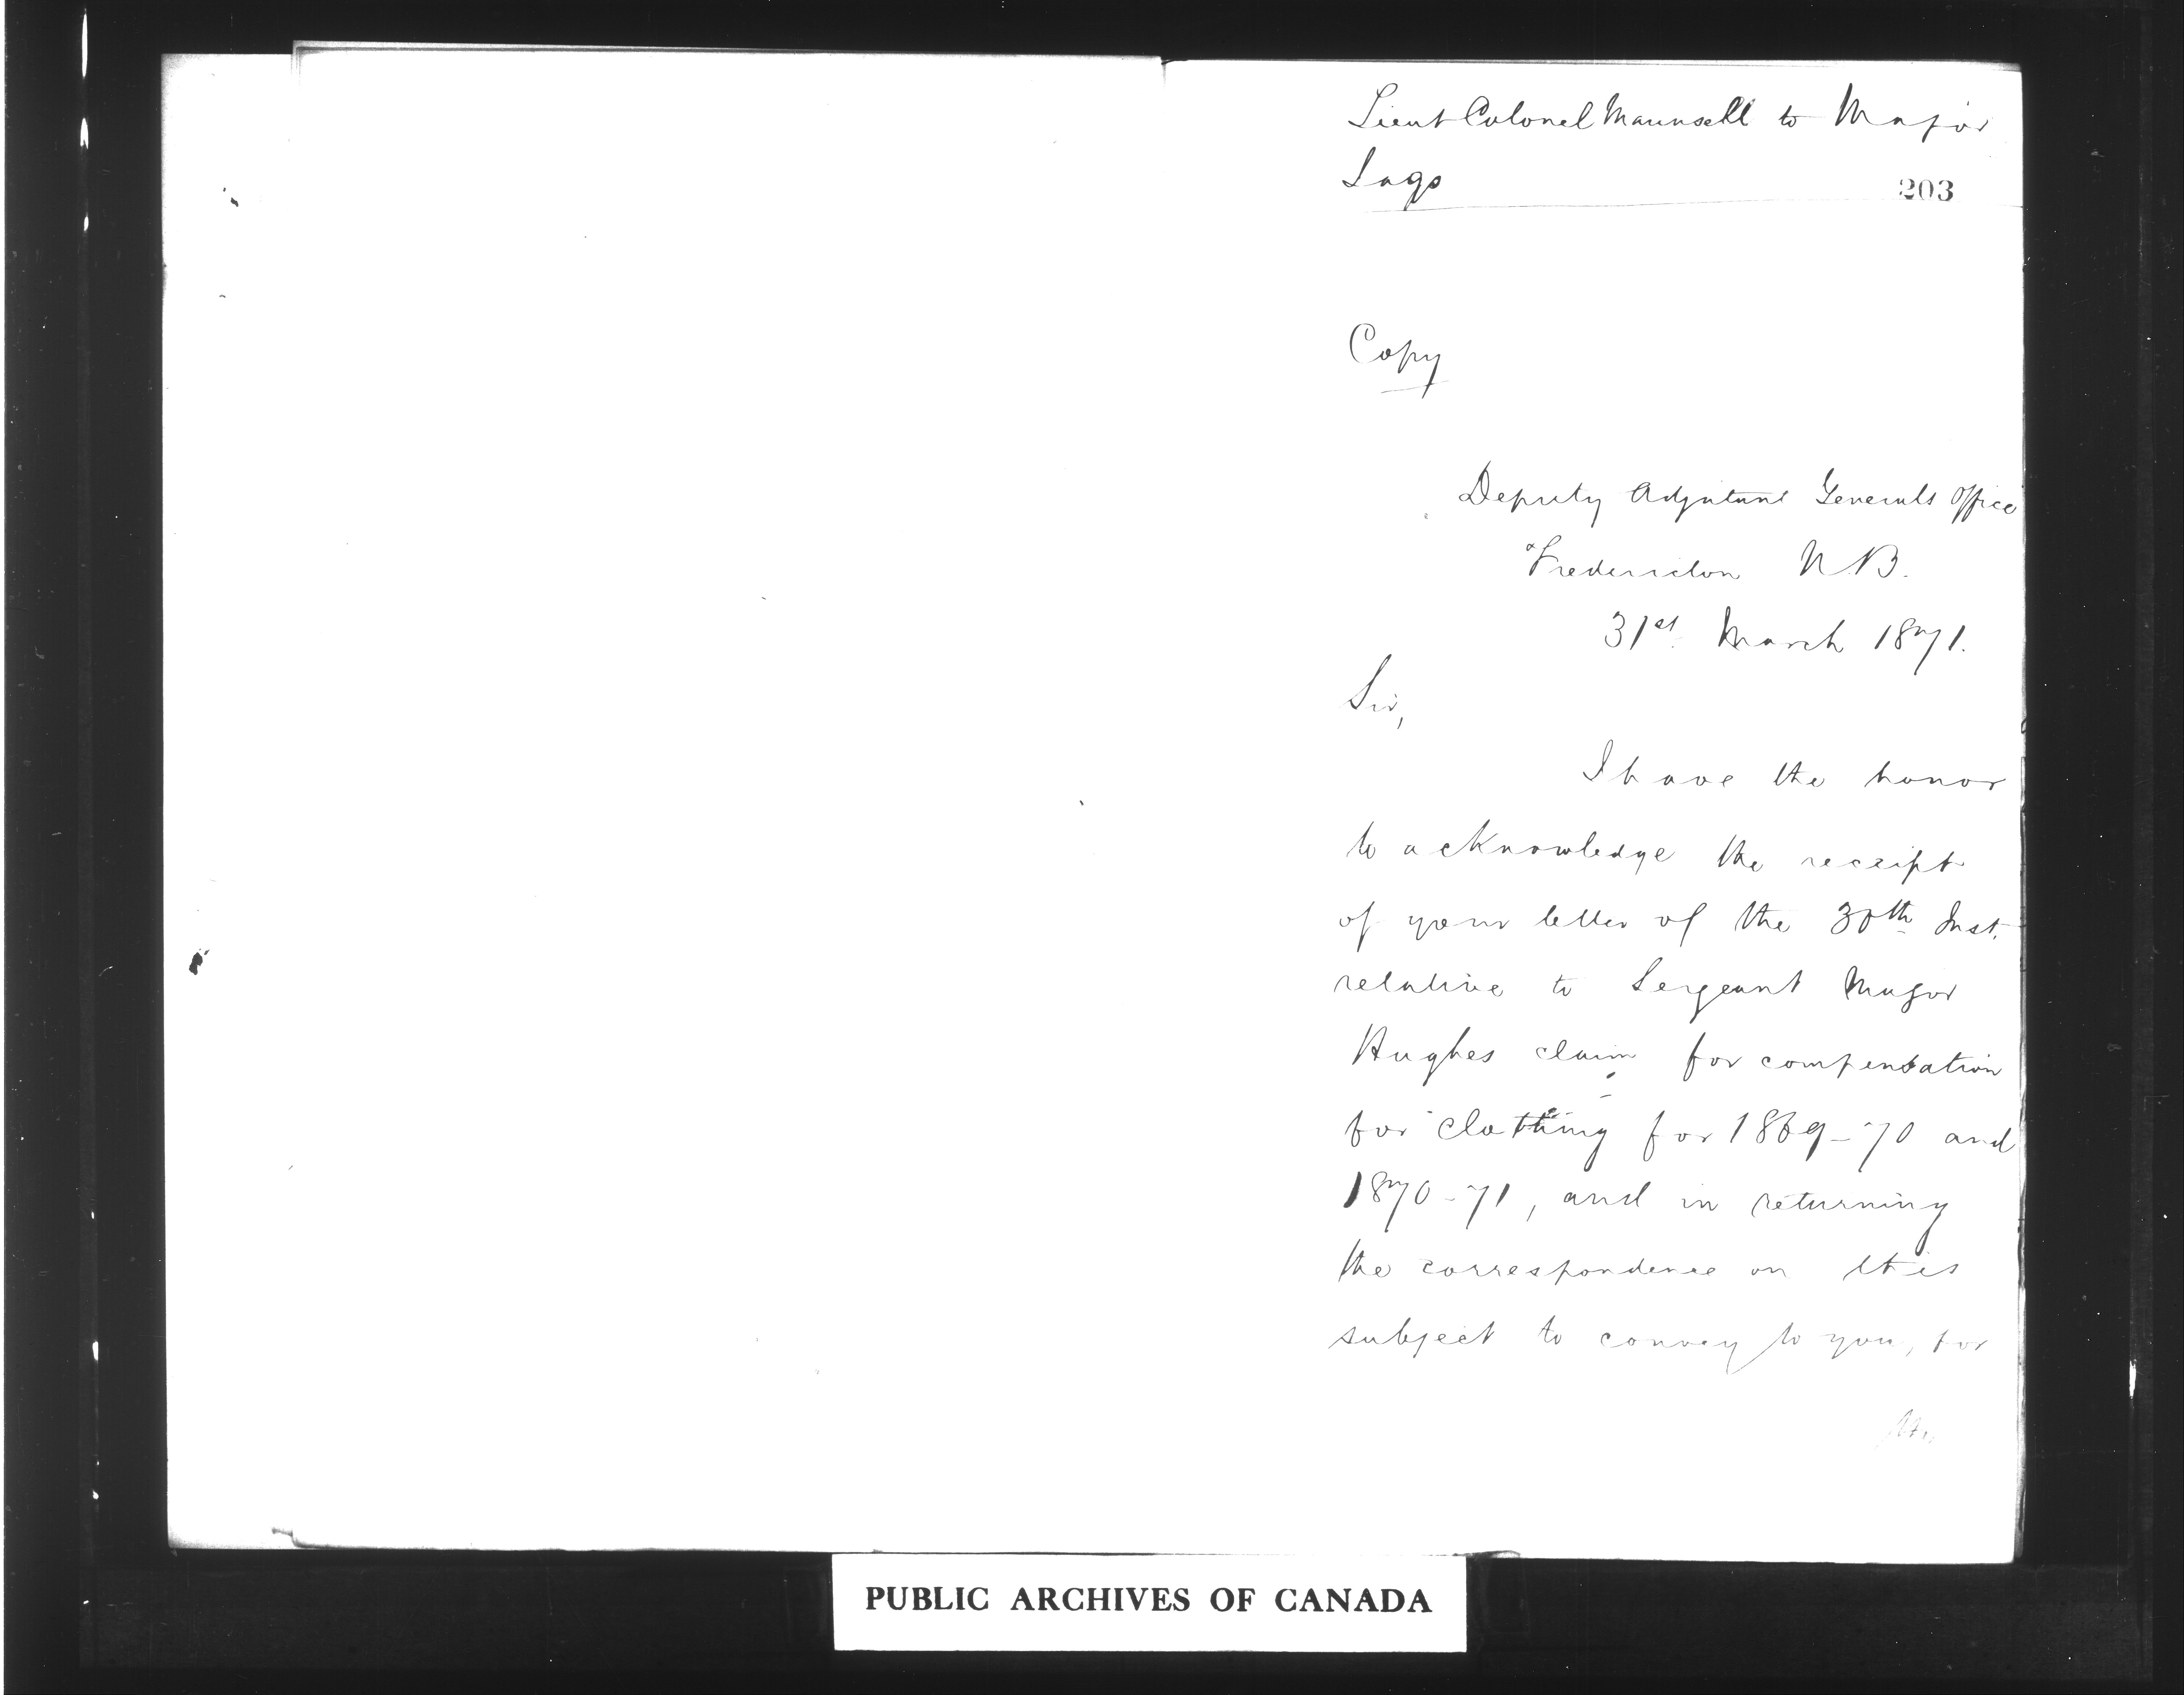 Lieut Colonel Maunsell to Major
Ingo
203
Copy
Deputy Adjutant Generals Office
Fredericton N.B.
31st March 1871.
Sir,
I have the honor
to acknowledge the receipt
of your letter of the 30th Inst.
relative to Sergeant Major
Hughes claim for compensation
for clothing for 1869-70 and
1870-71, and in returning
the correspondence on this
subject to convey to you, for
PUBLIC ARCHIVES OF CANADA